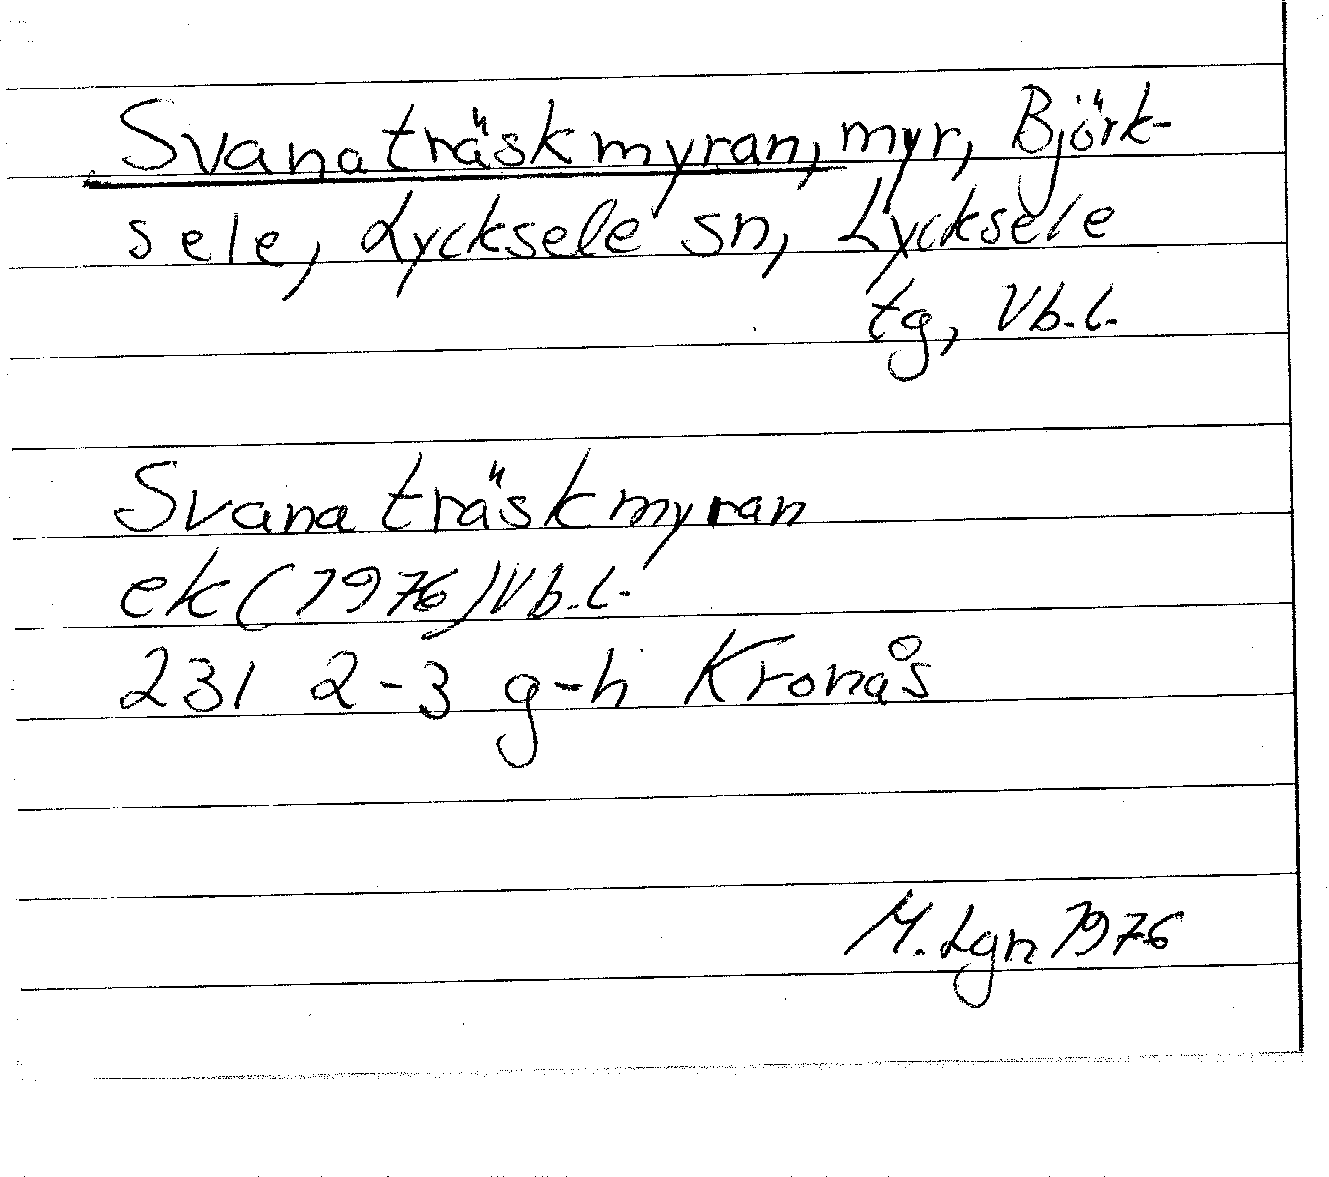 Svanaträskmyran, myr, Björk-
sele, Lycksele sn, Lycksele
tg, Vb.l.
Svanaträskmyran
ek (1976) Vb.l.
231 2-3 g-h Kronås
M. Lgn 1976